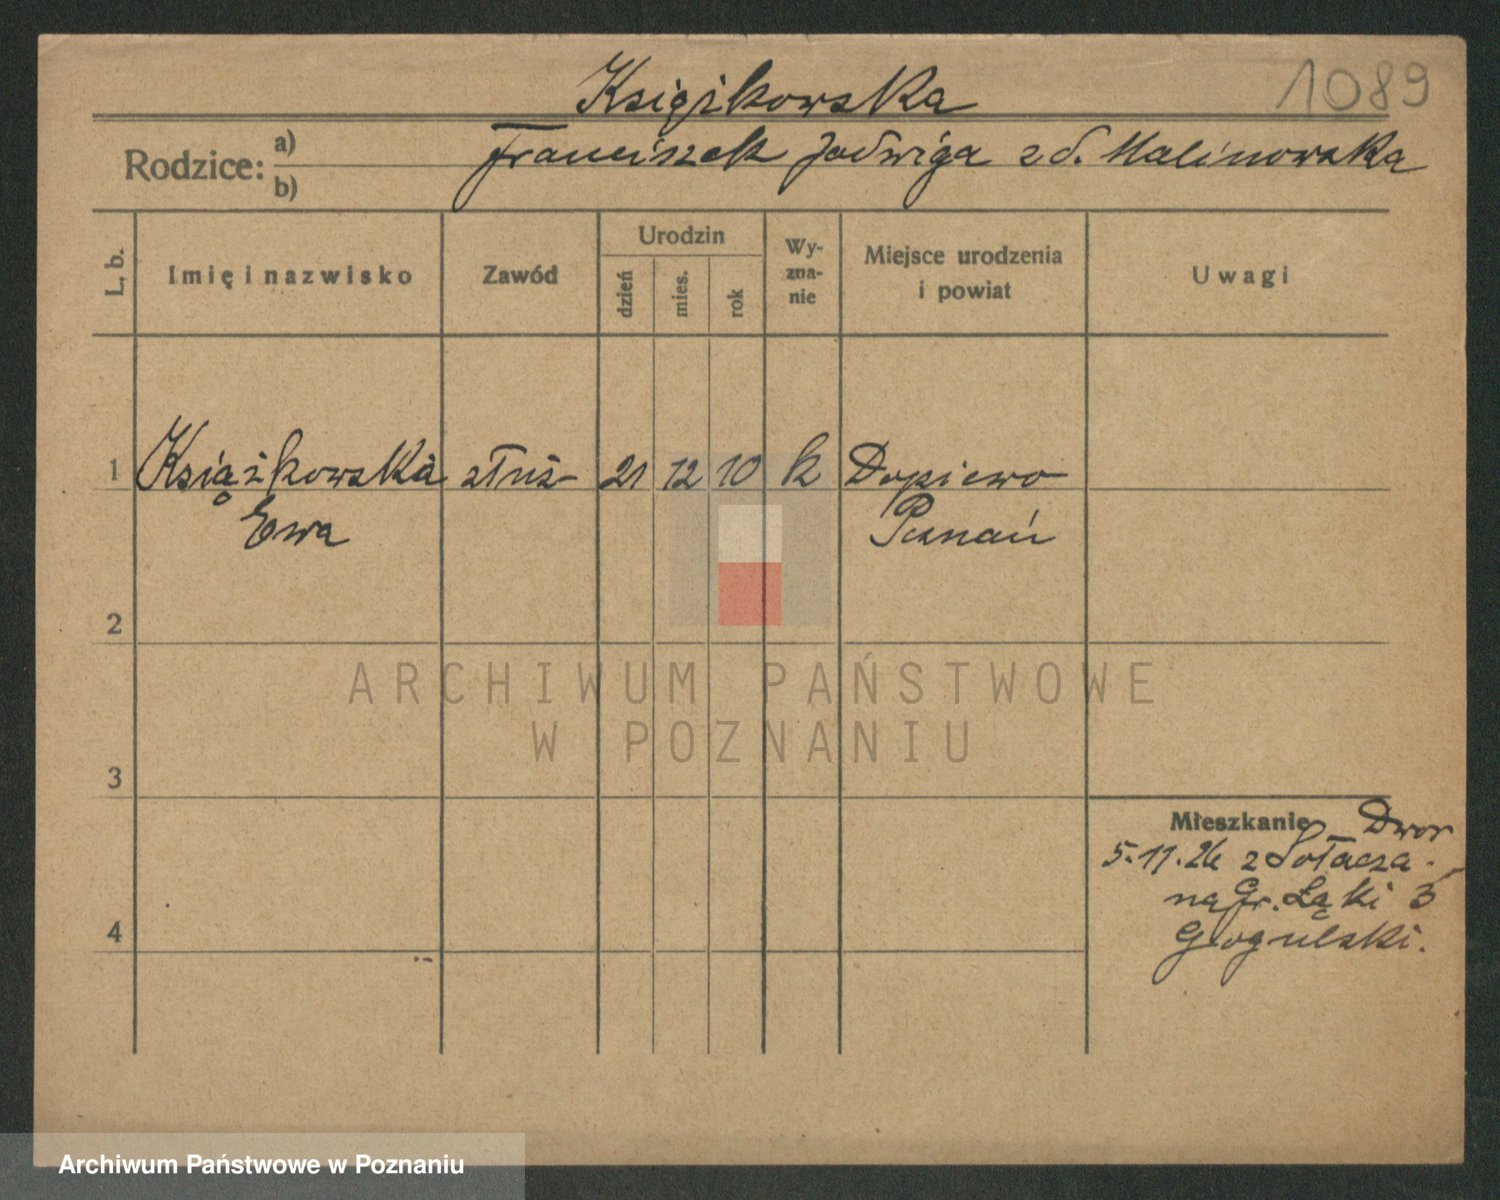 Książkowska
1089
Rodzice: a) Franciszek Jadwiga zd. Malinowska
b)
L. b.
Imię i nazwisko
Zawód
Urodzin
dzień
mies.
rok
Wy-
zna-
nie
Miejsce urodzenia
i powiat
Uwagi
1 Książkowska służ 21 12 10 k Dopiewo
Ewa Poznań
2
ARCHIWUM PAŃSTWOWE
W POZNANIU
3
Mieszkanie Dwor
5.11.26 z Sołacza
na Gr. Łąki 3
4
Archiwum Państwowe w Poznaniu